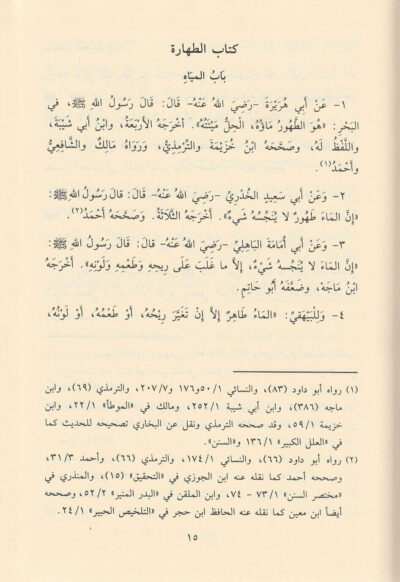 كتاب الطهارة
بَابُ المِيَاهِ
١- عَنْ أَبِي هُرَيْرَةَ -رَضِيَ اللهُ عَنْهُ- قَالَ: قَالَ رَسُولُ اللهِ ﷺ، في
البَحْرِ: «هُوَ الطَّهُورُ مَاؤُهُ، الحِلُّ مَيْتَتُهُ». أَخْرَجَهُ الأَرْبَعَةُ، وابْنُ أَبي شَيْبَةَ،
واللَّفْظُ لَهُ، وَصَحَّحَهُ ابْنُ خُزَيْمَةَ والتِّرْمِذِيُّ، وَرَوَاهُ مَالِكٌ والشَّافِعِيُّ
وأَحْمَدُ(١).
٢- وَعَنْ أَبي سَعِيدٍ الخُدْرِيِّ -رَضِيَ اللهُ عَنْهُ- قَالَ: قالَ رَسُولُ اللهِ ﷺ:
«إِنَّ المَاءَ طَهُورٌ لا يُنَجِّسُهُ شَيءٌ». أَخْرَجَهُ الثَّلاثَةُ. وَصَحَّحَهُ أَحْمَدُ(٢).
٣- وَعَنْ أَبي أُمَامَةَ البَاهِلِيِّ -رَضِيَ اللهُ عَنْهُ- قَالَ: قالَ رَسُولُ اللهِ ﷺ:
«إِنَّ المَاءَ لا يُنَجِّسُهُ شَيْءٌ، إِلاَّ ما غَلَبَ عَلَى رِيحِهِ وَطَعْمِهِ وَلَوْنِهِ». أَخْرَجَهُ
ابْنُ مَاجَه، وضَعَّفَهُ أَبُو حَاتِمٍ.
٤- وَلِلْبَيْهَقِيِّ: «المَاءُ طَاهِرٌ إِلاَّ إِنْ تَغَيَّرَ رِيْحُهُ، أَوْ طَعْمُهُ، أَوْ لَوْنُهُ،
(١) رواه أبو داود (٨٣)، والنسائي ٥٠/١ و١٧٦ و٢٠٧/٧، والترمذي (٦٩)، وابن
ماجه (٣٨٦)، وابن أبي شيبة ٢٥٢/١، ومالك في «الموطأ» ٢٢/١، وابن
خزيمة ٥٩/١، وقد صححه الترمذي ونقل عن البخاري تصحيحه للحديث كما
في «العلل الكبير» ١٣٦/١ و«السنن».
(٢) رواه أبو داود (٦٦)، والنسائي ١٧٤/١، والترمذي (٦٦)، وأحمد ٣١/٣،
وصححه أحمد كما نقله عنه ابن الجوزي في «التحقيق» (١٥)، والمنذري في
«مختصر السنن» ٧٣/١ - ٧٤، وابن الملقن في «البدر المنير» ٥٢/٢، وصححه
أيضاً ابن معين كما نقله عنه الحافظ ابن حجر في «التلخيص الحبير» ٢٤/١.
١٥